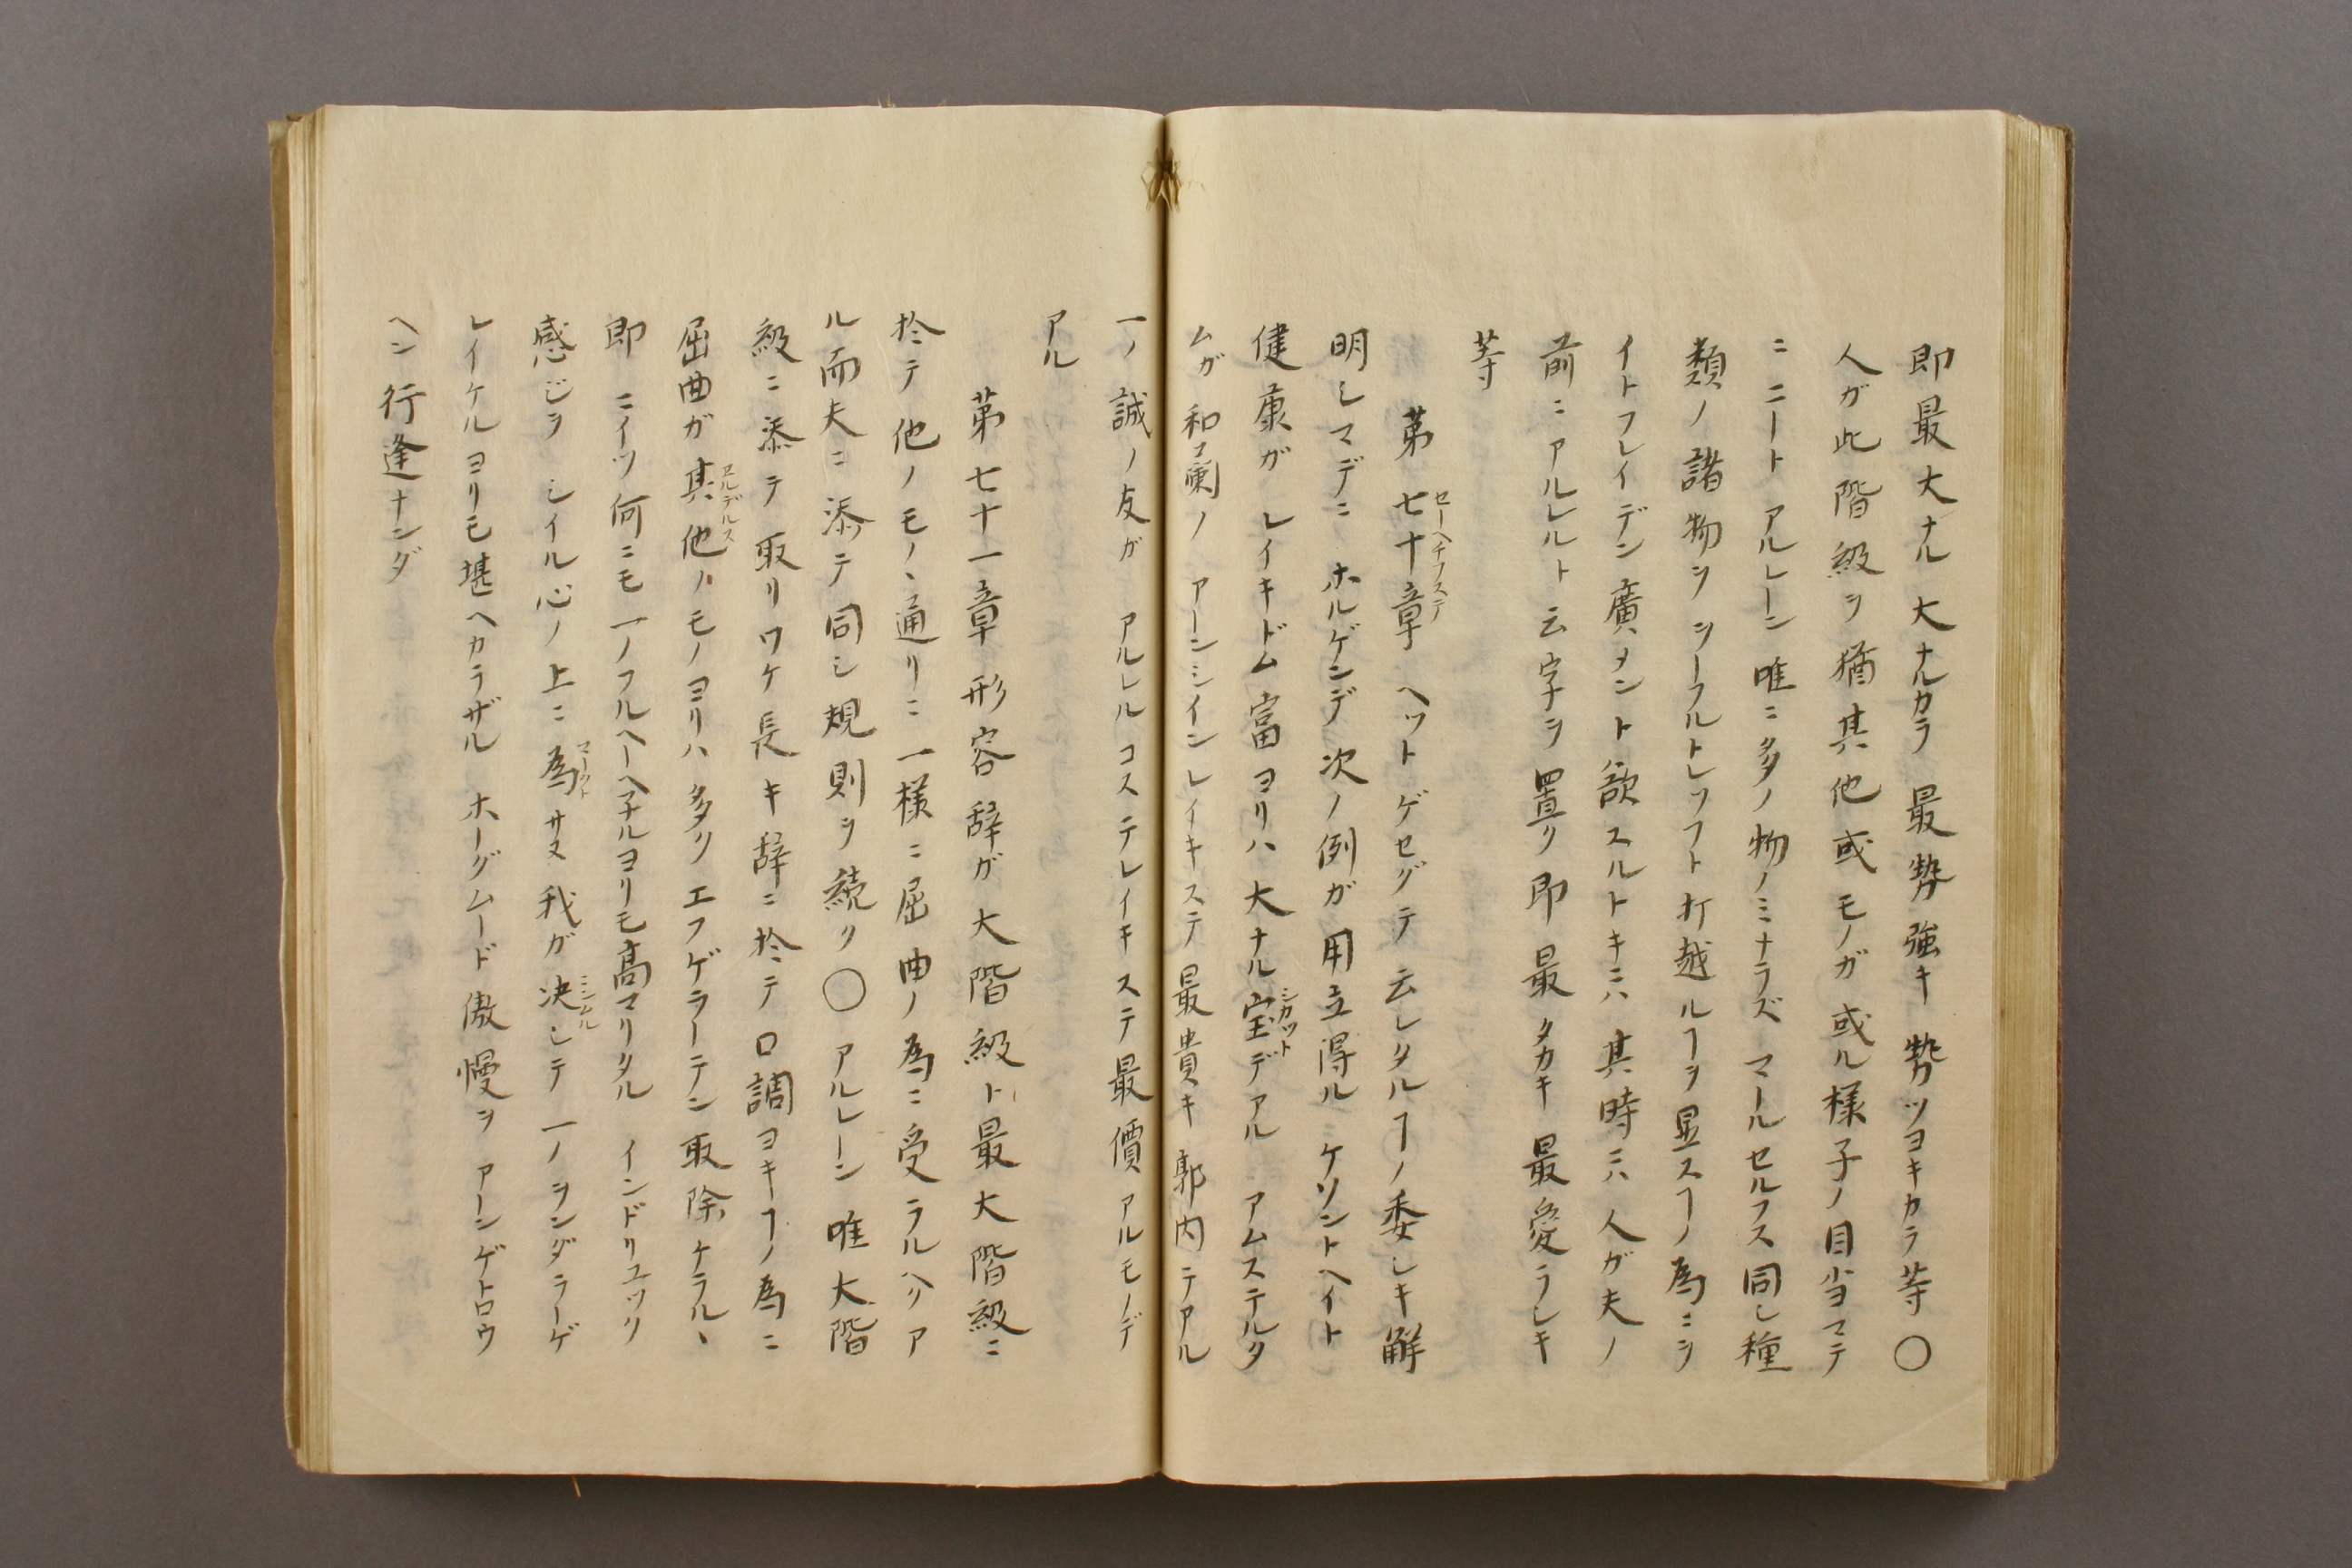 即最大ナル 大ナルカラ 最勢強キ 勢ツヨキカラ等 ○
人ガ此階級ヲ猶其他或モノガ或ル様子ノ目当ヨマテ
ニ ニート アルレーン 唯ニ多ノ物ノミナラズ マールセルフス 同し種
類ノ諸物ヲ ヲーフルトレツフト 打越ルヿヲ显スヿノ為ニヲ
イトフレイデン 廣メント欲スルトキニハ 其時ニハ 人ガ夫ノ
前ニ アルレルト 云字ヲ置ク 即最タカキ 最愛ラしキ
等
第七十章 ヘット ゲセグテ 云レタルヿノ委しキ解
セーヘチフステ
明しマデニ ホルゲンデ 次ノ例ガ用立得ル ケソントヘイト
健康ガ レイキドム 富ヨリハ 大ナル宝デアル アムステルタ
シカット
ムガ和蘭ノ アーンシインレイキステ 最貴キ 郭内テアル
一ノ誠ノ友ガ アルレルコステレイキステ 最價アルモノデ
アル
第七十一章 形容辞ガ大階級ト最大階級ニ
於テ他ノモノヽ通リニ一様ニ屈曲ノ為ニ受ラルヘリア
ル而夫ニ添テ同し規則ヲ続ク ○ アルレーン 唯大階
級ニ添テ取リワケ長キ辞ニ於テ口調ヨキヿノ為ニ
屈曲ガ其他ノモノヨリハ多ク エフゲラーテン 取除ケラルヽ
ヲルデルス
即 ニイツ 何ニモ一ノフルヘーヘ子ルヨリモ高マリタル インドリユツク
感じヲ しイル 心ノ上ニ為サヌ我ガ決しテ一ノヲンダラーゲ
マーット
ニンムル
レイケルヨリモ堪ヘカラザル ホーグムード 傲慢ヲ アーンゲトロウ
ヘン 行逢ナンダ